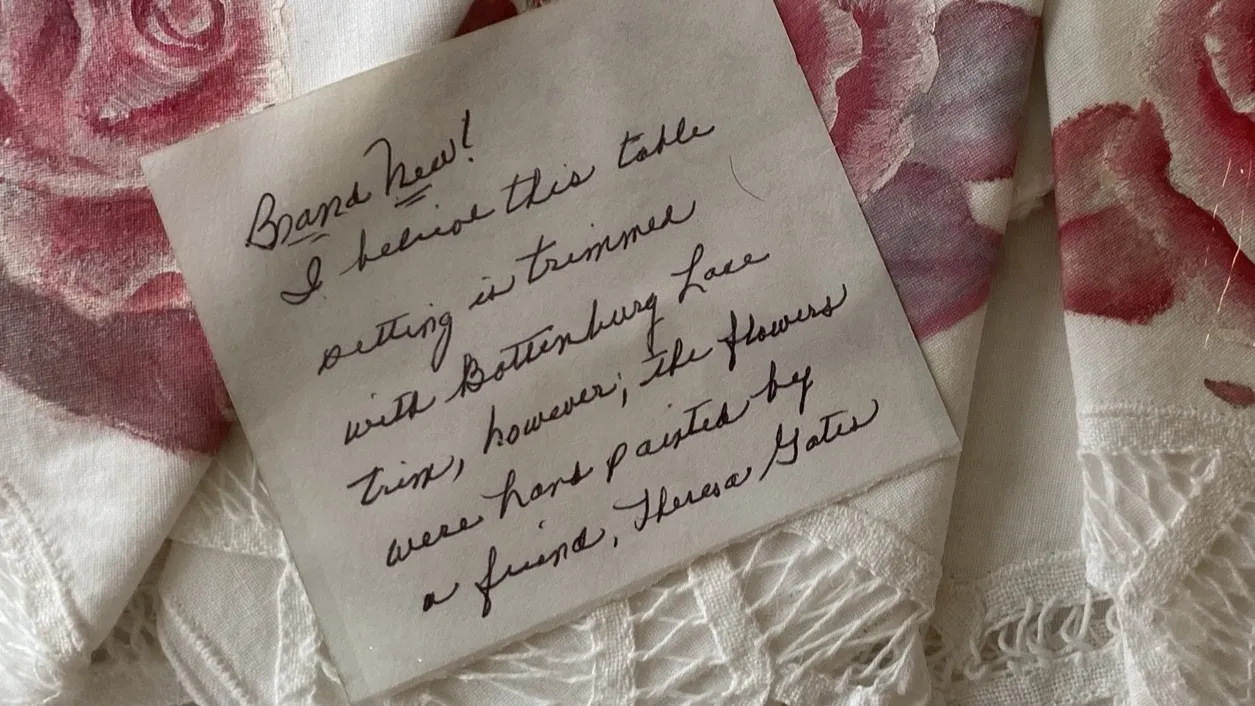 Brand New!
I believe this table
setting is trimmed
with Bottenburg Lace
trim, however; the flowers
were hand painted by
a friend, Theresa Gates